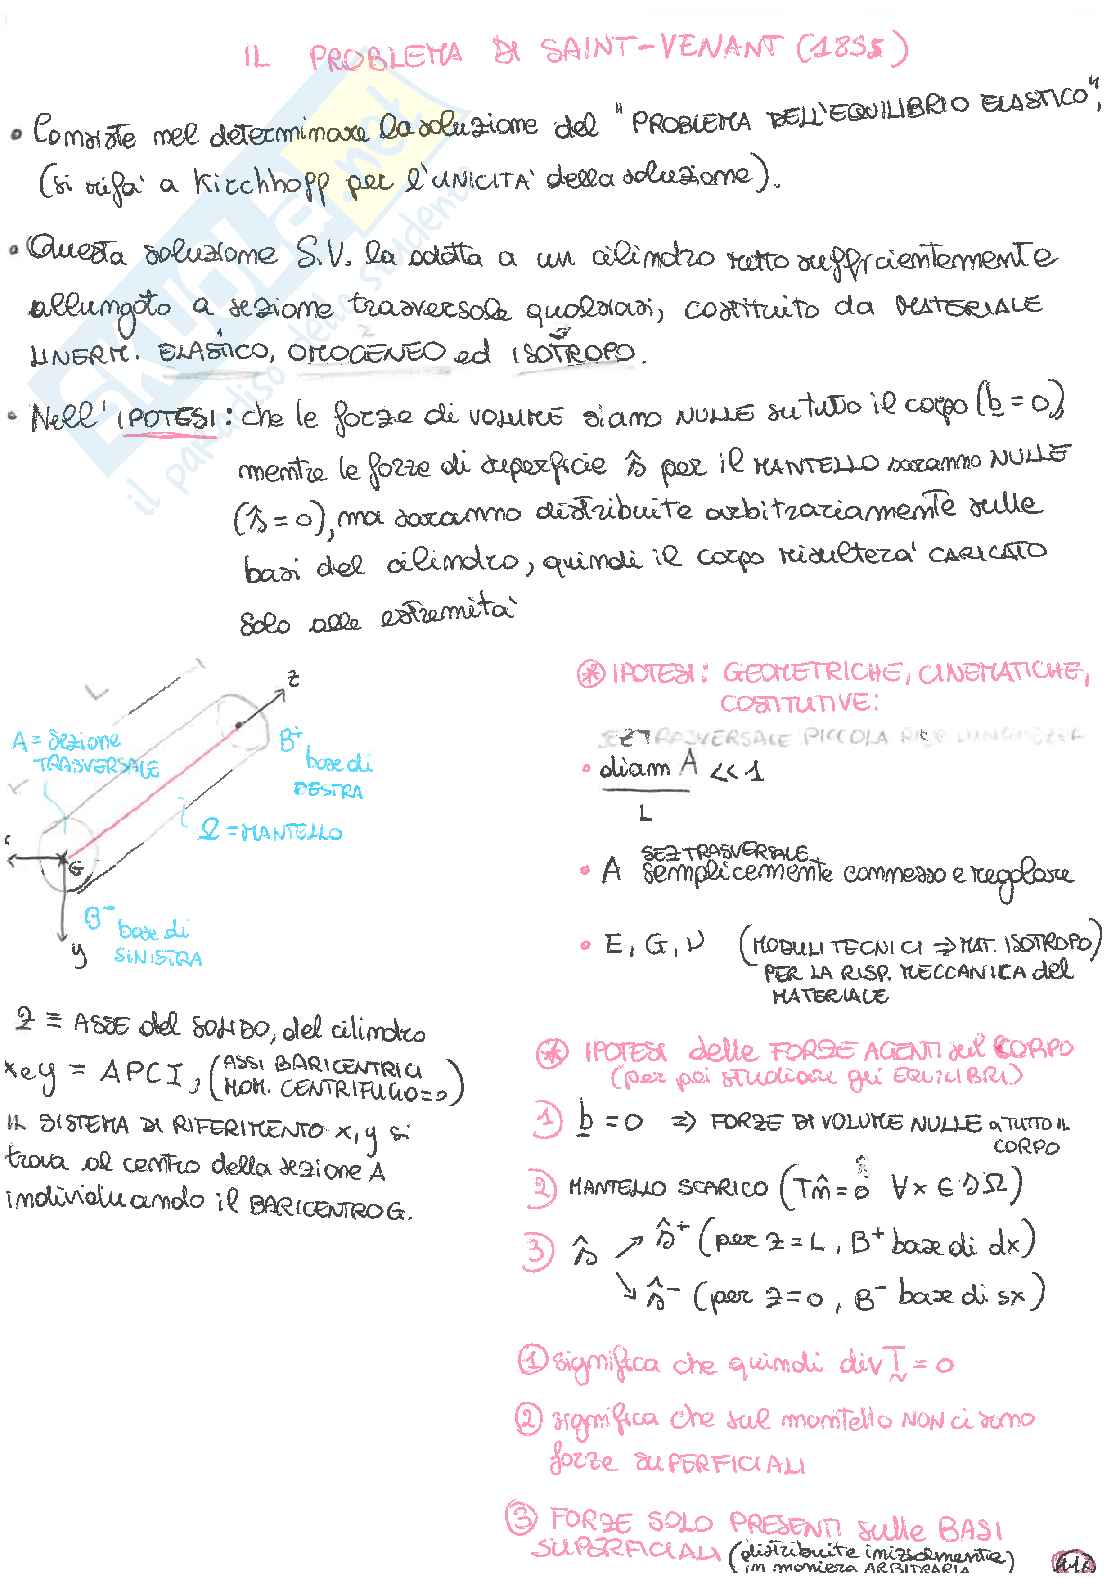 IL PROBLEMA DI SAINT-VENANT (1855)
• Consiste nel determinare la soluzione del "PROBLEMA DELL'EQUILIBRIO ELASTICO",
(si rifà a Kirchhoff per l'UNICITA' della soluzione).
• Questa soluzione S.V. la adatta a un cilindro retto sufficientemente
allungato a sezione trasversale qualsiasi, costituito da MATERIALE
LINERM. ELASTICO, OMOGENEO ed ISOTROPO.
• Nell'IPOTESI: che le forze di VOLUME siano NULLE su tutto il corpo (b = 0),
mentre le forze di superficie ŝ per il MANTELLO saranno NULLE
(ŝ = 0), ma saranno distribuite arbitrariamente sulle
basi del cilindro, quindi il corpo risulterà CARICATO
solo alle estremità
L
z
A = sezione
TRASVERSALE
B⁺
base di
DESTRA
Ω = MANTELLO
G
B⁻ base di
SINISTRA
y
⊛ IPOTESI: GEOMETRICHE, CINEMATICHE,
COSTITUTIVE:
TRASVERSALE PICCOLA
• diam A << 1
L
SEZ TRASVERSALE
• A semplicemente connesso e regolare
• E, G, ν (MODULI TECNICI ⇒ MAT. ISOTROPO)
PER LA RISP. MECCANICA del
MATERIALE
Z ≡ ASSE del SOLIDO, del cilindro
x e y = APCI, (ASSI BARICENTRICI
MOM. CENTRIFUGO = 0)
IL SISTEMA DI RIFERIMENTO x, y si
trova al centro della sezione A
individuando il BARICENTRO G.
⊛ IPOTESI delle FORZE AGENTI sul CORPO
(per poi studiare gli EQUILIBRI)
1) b = 0 ⇒ FORZE DI VOLUME NULLE a TUTTO IL
CORPO
2) MANTELLO SCARICO (T n̂ = 0 ∀ x ∈ ∂Ω)
3) ŝ ↗ ŝ⁺ (per z = L, B⁺ base di dx)
↘ ŝ⁻ (per z = 0, B⁻ base di sx)
① significa che quindi div T = 0
② significa che sul mantello NON ci sono
forze SUPERFICIALI
③ FORZE SOLO PRESENTI sulle BASI
SUPERFICIALI (distribuite inizialmente)
in maniera ARBITRARIA
skuola.net
il paradiso dello studente